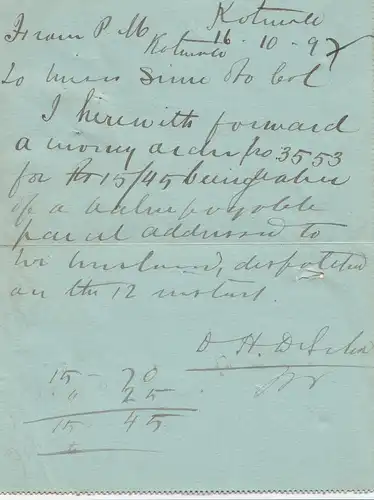 Kotmale
From P M
Kotmale 16-10-97
To Messrs Sime & Co Col
I herewith forward
a money order No 3553
for Rs 15/45 being value
of a value payable
parcel addressed to
Mr , despatched
on the 12 instant.
D H. De Silva
15 - 70
" 25
15 45